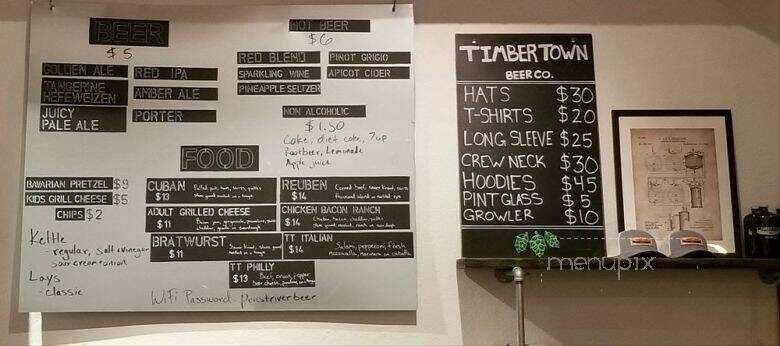 BEER
$5
GOLDEN ALE
RED IPA
TANGERINE
HEFEWEIZEN
AMBER ALE
JUICY
PALE ALE
PORTER
NOT BEER
$6
RED BLEND
PINOT GRIGIO
SPARKLING WINE
APICOT CIDER
PINEAPPLE SELTZER
NON ALCOHOLIC
$1.50
Coke, diet coke, 7up
Rootbeer, Lemonade
Apple juice
FOOD
BAVARIAN PRETZEL $9
KIDS GRILL CHEESE $5
CHIPS $2
Kettle
- regular, Salt & vinegar
sour cream + onion
Lays
- Classic
CUBAN
$13
ADULT GRILLED CHEESE
$11
BRATWURST
$11
REUBEN
$14
CHICKEN BACON RANCH
$14
TT ITALIAN
$14
Salami, pepperoni, fresh
mozzarella, marinara on ciabatta
TT PHILLY
$13
WiFi Password - pinostriverbeer
TIMBERTOWN
BEER CO.
HATS $30
T-SHIRTS $20
LONG SLEEVE $25
CREW NECK $30
HOODIES $45
PINT GLASS $5
GROWLER $10
menupix